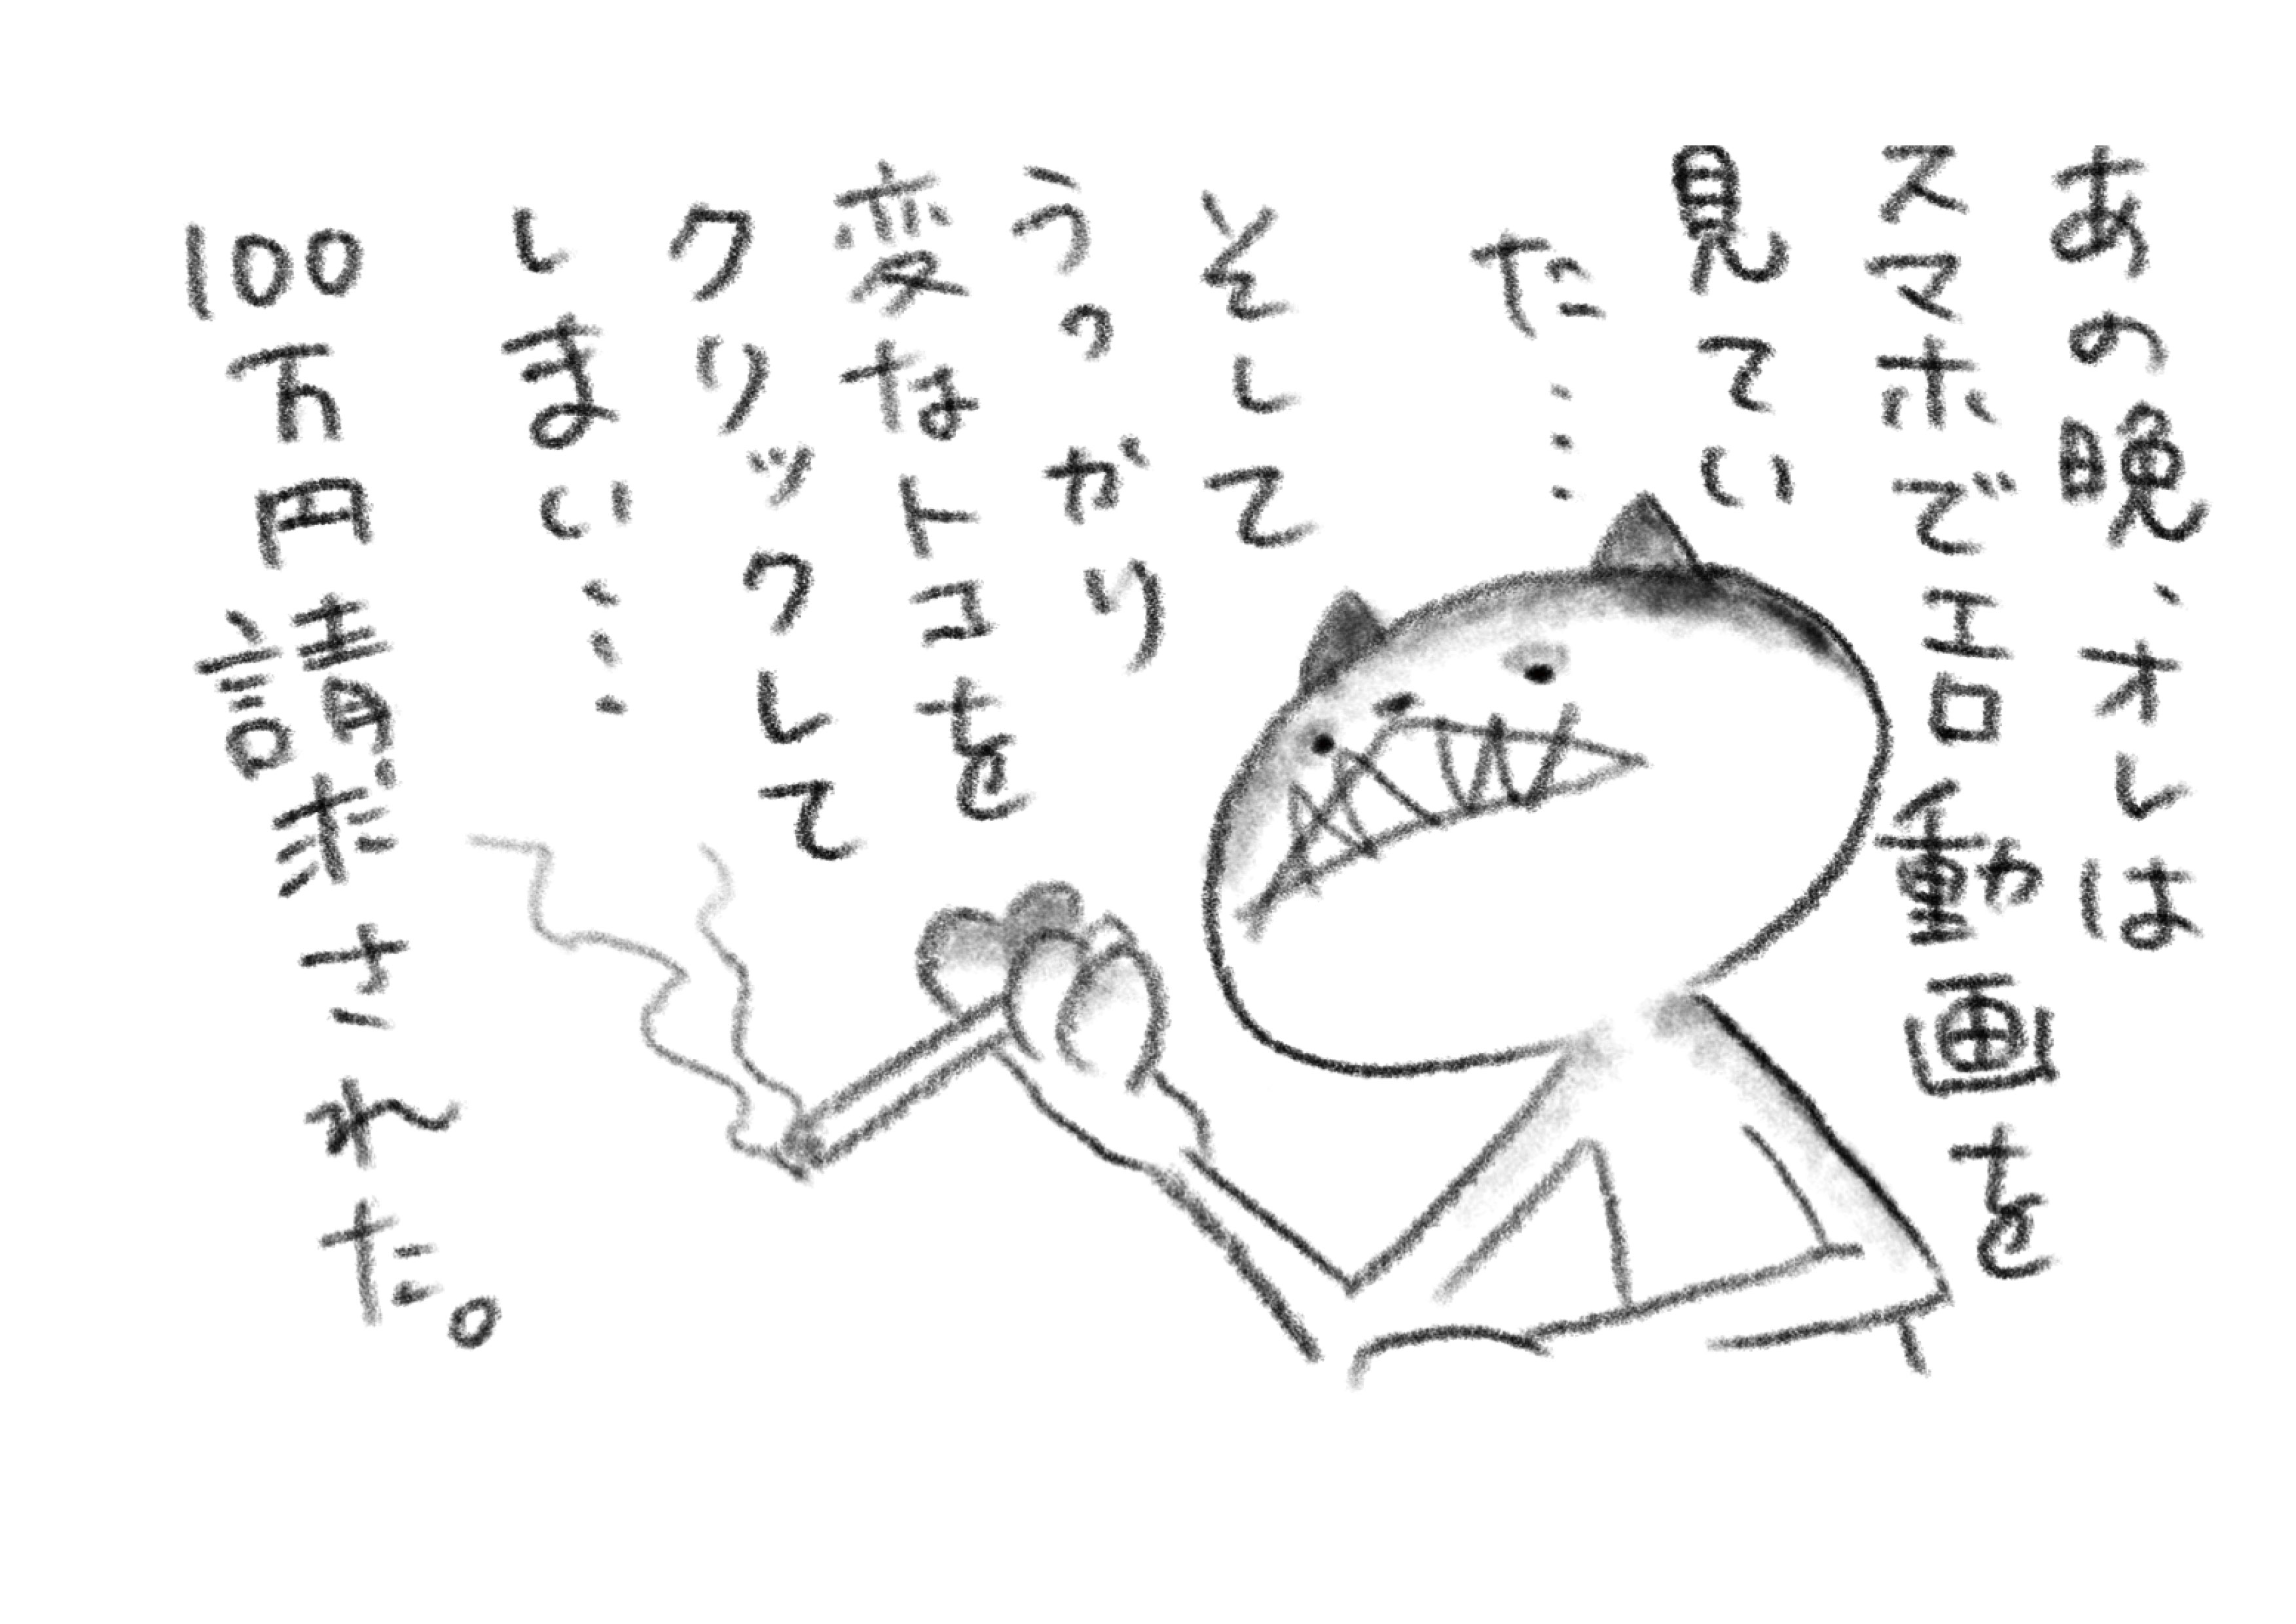 あの晩、オレは
スマホでエロ動画を
見てい
た…
そして
うっかり
変なトコを
クリックして
しまい…
100万円請求された。